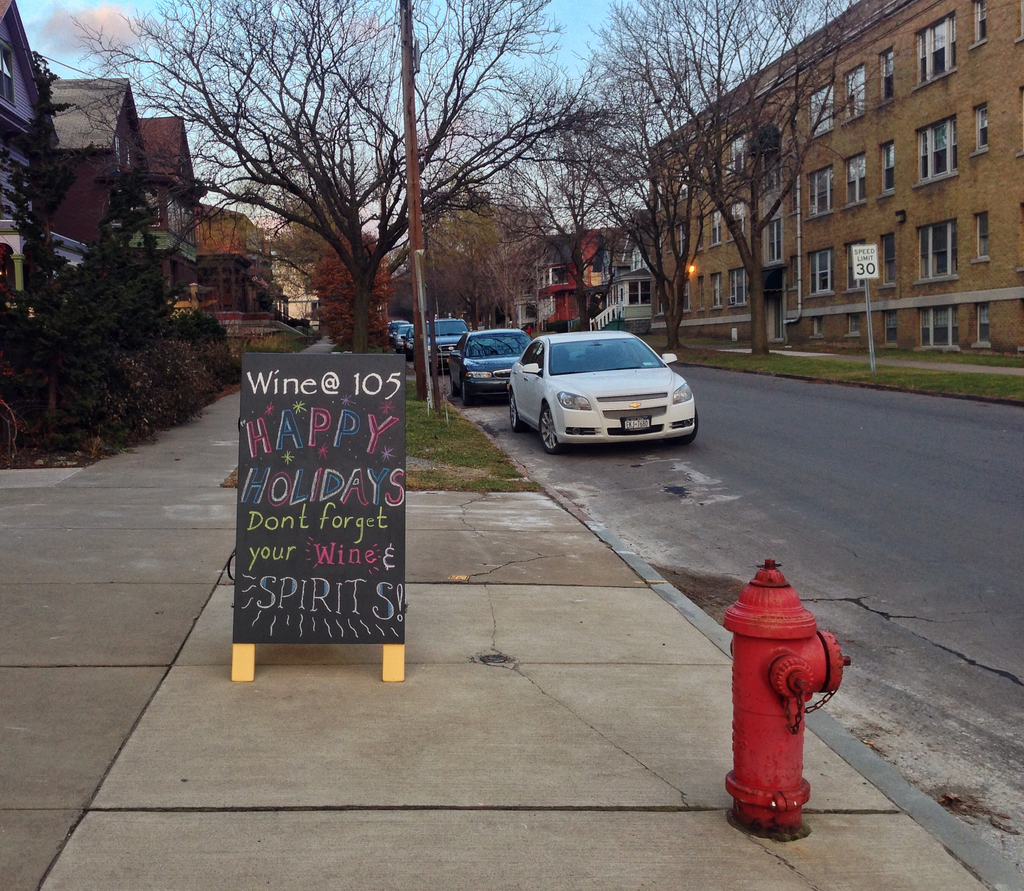 Wine@ 105
HAPPY
HOLIDAYS
Dont forget
your Wine &
SPIRITS!
SPEED
LIMIT
30